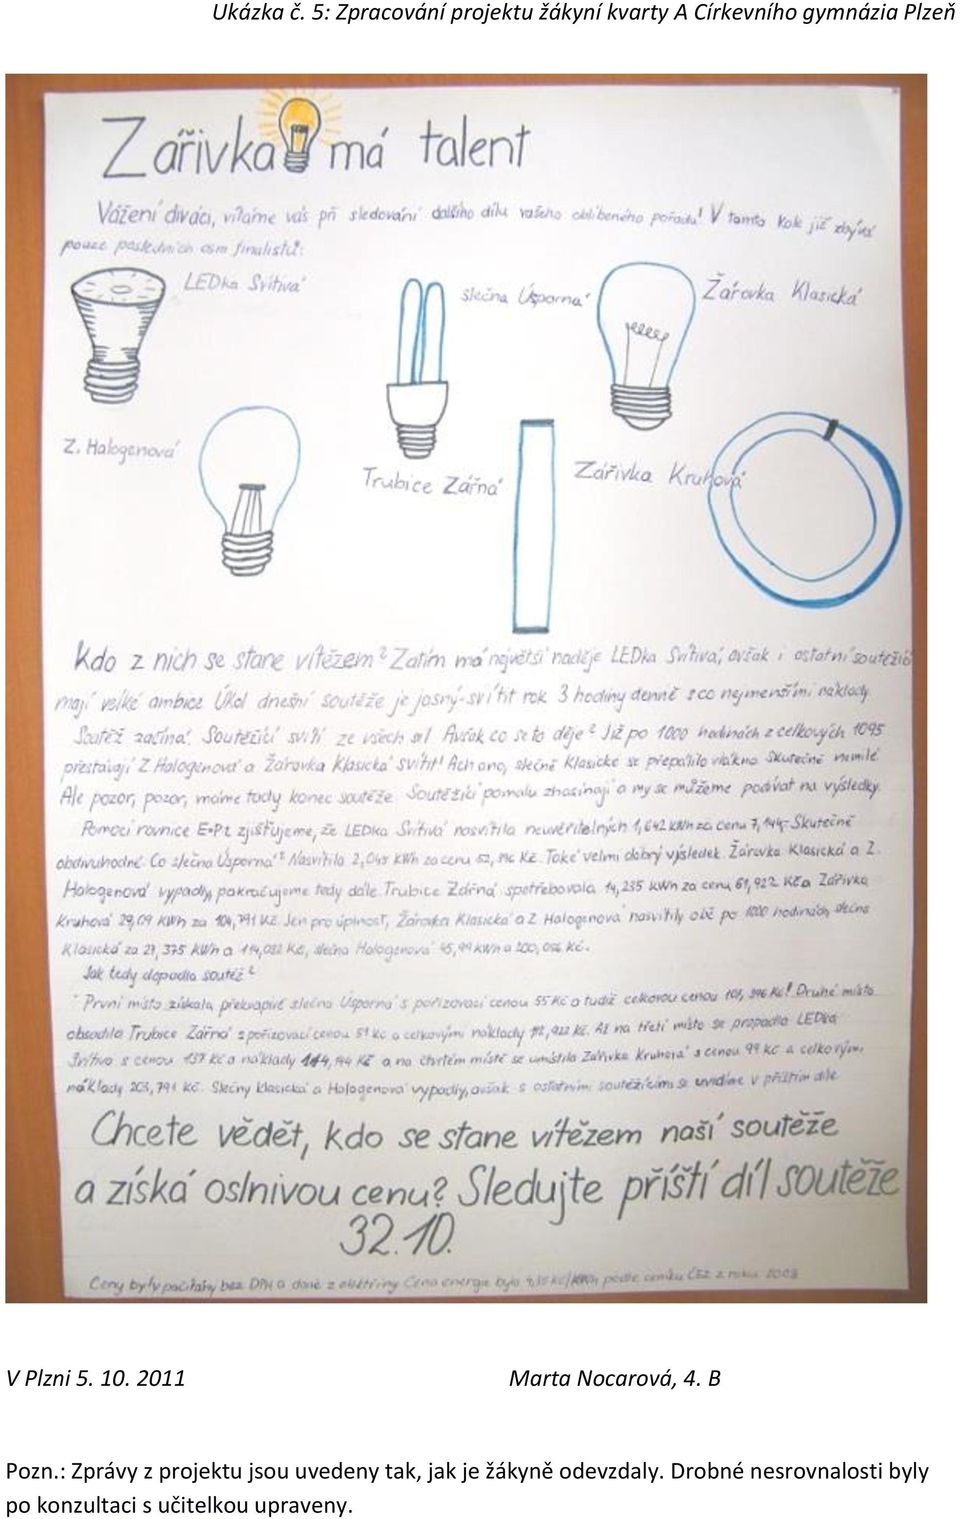 Ukázka č. 5: Zpracování projektu žákyní kvarty A Církevního gymnázia Plzeň
Zářivka má talent
Vážení diváci, vítáme vás při sledování dalšího dílu vašeho oblíbeného pořadu! V tomto kole již zbývá
pouze posledních osm finalistů:
LEDka Svítivá
slečna Úsporná
Žárovka Klasická
Z. Halogenová
Trubice Zářná
Zářivka Kruhová
Kdo z nich se stane vítězem? Zatím má největší naděje LEDka Svítivá, avšak i ostatní soutěžící
mají velké ambice. Úkol dnešní soutěže je jasný-svítit rok 3 hodiny denně s co nejmenšími náklady.
Soutěž začíná. Soutěžící svítí ze všech sil. Avšak co se to děje? Již po 1000 hodinách z celkových 1095
přestávají Z. Halogenová a Žárovka Klasická svítit! Ach ano, slečně Klasické se přepálilo vlákno. Skutečně nemilé.
Ale pozor, pozor, máme tady konec soutěže. Soutěžící pomalu zhasínají a my se můžeme podívat na výsledky.
Pomocí rovnice E=P.t zjišťujeme, že LEDka Svítivá nasvítila neuvěřitelných 1,642 kWh za cenu 7,144,-. Skutečně
obdivuhodné. Co slečna Úsporná? Nasvítila 2,045 kWh za cenu 52, Kč. Také velmi dobrý výsledek. Žárovka Klasická a Z.
Halogenová vypadly, pokračujeme tedy dále. Trubice Zářná spotřebovala 14,235 kWh za cenu 61,922 Kč a Zářivka
Kruhová 29,09 kWh za 104,791 Kč. Jen pro úplnost, Žárovka Klasická a Z. Halogenová nasvítily obě po 1000 hodinách, slečna
Klasická za 27,375 kWh a Kč, slečna Halogenová 45,99 kWh a Kč.
Jak tedy dopadla soutěž?
První místo získala překvapivě slečna Úsporná s pořizovací cenou 55 Kč a tudíž celkovou cenou Kč! Druhé místo
obsadila Trubice Zářná s pořizovací cenou 51 Kč a celkovými náklady 112,922 Kč. Až na třetí místo se propadla LEDka
Svítivá s cenou 137 Kč a náklady 144,144 Kč a na čtvrtém místě se umístila Zářivka Kruhová s cenou 99 Kč a celkovými
náklady 203,791 Kč. Slečny Klasická a Halogenová vypadly, avšak s ostatními soutěžícími se uvidíme v příštím díle
Chcete vědět, kdo se stane vítězem naší soutěže
a získá oslnivou cenu? Sledujte příští díl soutěže
32.10.
Ceny byly počítány bez DPH a daně z elektřiny. Cena energie byla Kč/kWh podle ceníku ČEZ z roku 2008
V Plzni 5. 10. 2011 Marta Nocarová, 4. B
Pozn.: Zprávy z projektu jsou uvedeny tak, jak je žákyně odevzdaly. Drobné nesrovnalosti byly
po konzultaci s učitelkou upraveny.